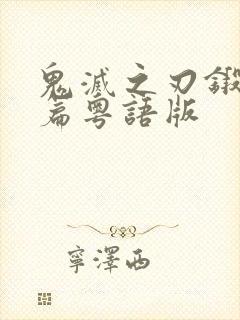 鬼滅之刃鍛
篇粵語版
寧澤西